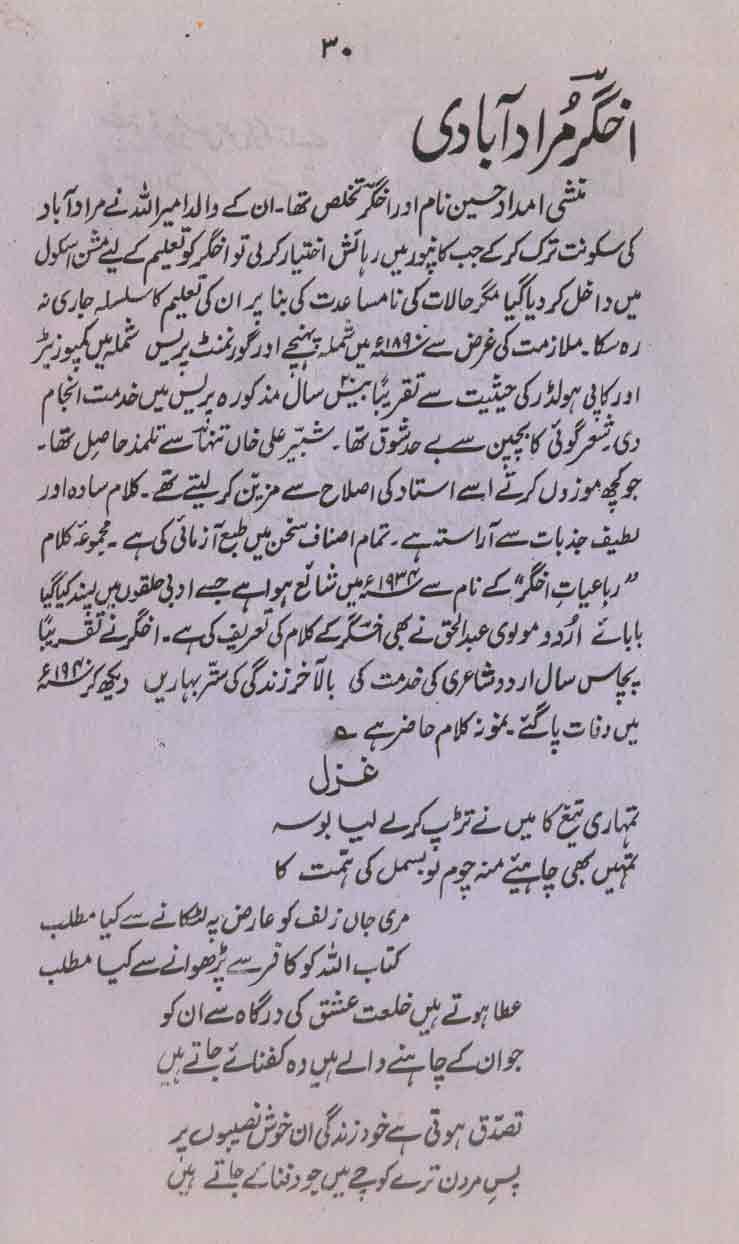 ۳۰
اخگرؔ مُراد آبادی
منشی امداد حسین نام اور اخگرؔ تخلص تھا۔ ان کے والد امیر اللہ نے مراد آباد
کی سکونت ترک کر کے جب کانپور میں رہائش اختیار کر لی تو اخگر کو تعلیم کے لیے مشن اسکول
میں داخل کر دیا گیا مگر حالات کی نامساعدت کی بنا پر ان کی تعلیم کا سلسلہ جاری نہ
رہ سکا۔ ملازمت کی غرض سے ۱۸۹۰ء میں شملہ پہنچے اور گورنمنٹ پریس شملہ میں کمپوزیٹر
اور کاپی ہولڈر کی حیثیت سے تقریباً بیس۲۰ سال مذکورہ پریس میں خدمت انجام
دی۔ شعر گوئی کا بچپن سے بے حد شوق تھا۔ شبیر علی خاں تنہاؔ سے تلمذ حاصل تھا۔
جو کچھ موزوں کرتے اسے استاد کی اصلاح سے مزین کر لیتے تھے۔ کلام سادہ اور
لطیف جذبات سے آراستہ ہے۔ تمام اصناف سخن میں طبع آزمائی کی ہے۔ مجموعۂ کلام
"رباعیاتِ اخگر" کے نام سے ۱۹۳۴ء میں شائع ہوا ہے جسے ادبی حلقوں میں پسند کیا گیا
بابائے اُردو مولوی عبدالحق نے بھی اخگر کے کلام کی تعریف کی ہے۔ اخگر نے تقریباً
پچاس سال اردو شاعری کی خدمت کی بالآخر زندگی کی ستّر بہاریں دیکھ کر ۱۹۴۰ء
میں وفات پا گئے۔ نمونہ کلام حاضر ہے ؎
غزل
تمہاری تیغ کا میں نے تڑپ کر لے لیا بوسہ
تمہیں بھی چاہیئے منہ چوم لو بسمل کی ہمّت کا
مری جاں زلف کو عارض پہ لٹکانے سے کیا مطلب
کتاب اللہ کو کافر سے پڑھوانے سے کیا مطلب
عطا ہوتے ہیں خلعت عشق کی درگاہ سے ان کو
جو ان کے چاہنے والے ہیں وہ کفنائے جاتے ہیں
تصدّق ہوتی ہے خود زندگی ان خوش نصیبوں پر
پسِ مردن ترے کوچے میں جو دفنائے جاتے ہیں